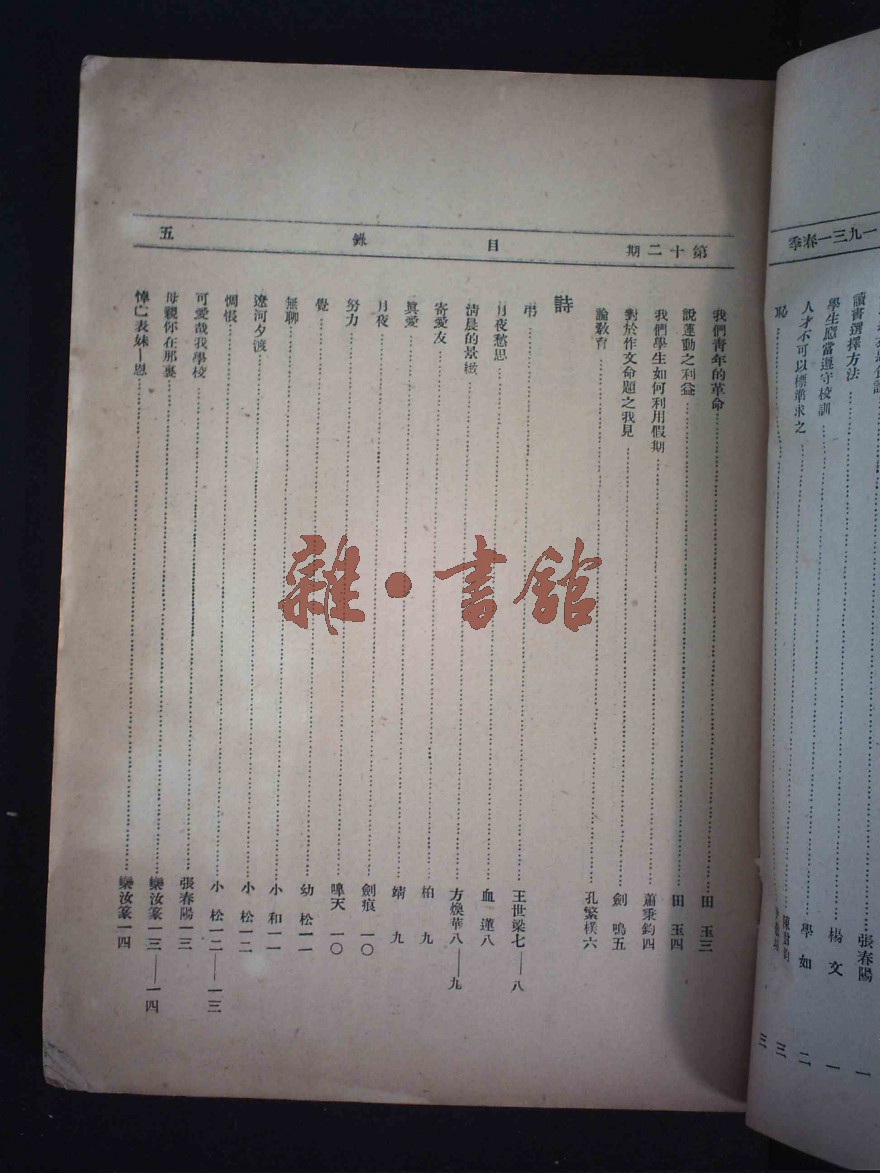 一九三一春季
讀書選擇方法……張春陽 一
學生應當遵守校訓……楊文 一
人才不可以標準求之……學如 二
恥……三
第十二期 目錄 五
我們青年的革命……田玉三
說運動之利益……田玉四
我們學生如何利用假期……蕭秉鈞四
對於作文命題之我見……劍鳴五
論教育……孔繁樸六
詩
弔……王世梁七——八
月夜愁思……血蓮八
清晨的景緻……方煥華八——九
寄愛友……柏九
眞愛……靖九
月夜……劍痕一〇
努力……嘷天一〇
覺……幼松一一
無聊……小和一一
遼河夕渡……小松一二
惆悵……小松一二——一三
可愛哉我學校……張春陽一三
母親你在那裏……欒汝篆一三——一四
悼亡表妹—恩……欒汝篆一四
雜·書館